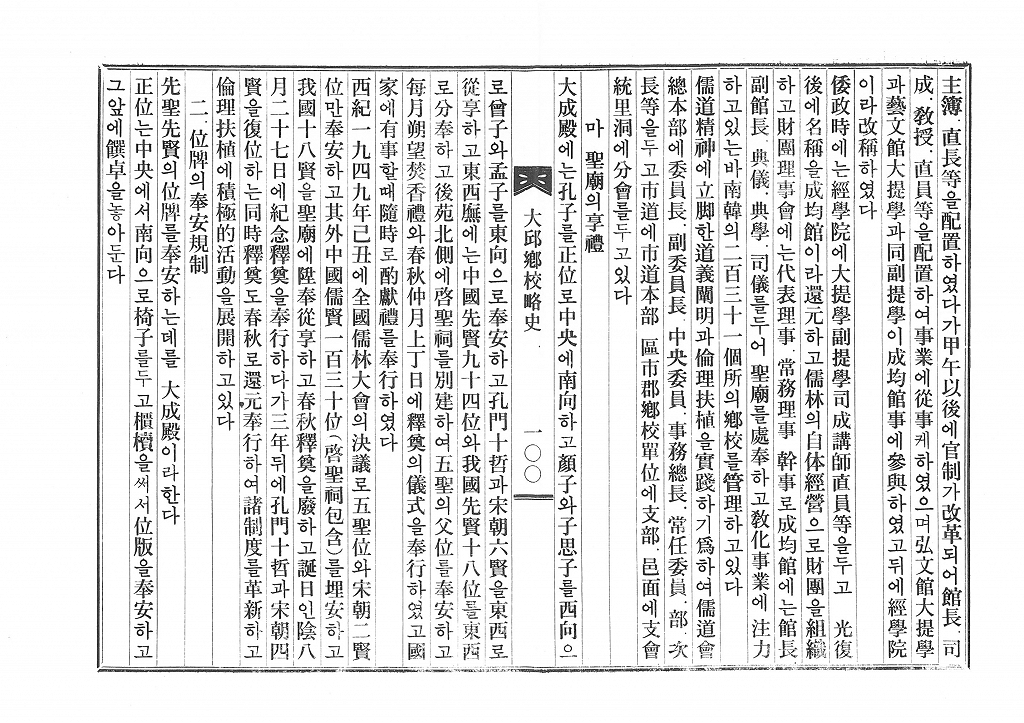 主簿、直長等을配置하였다가甲午以後에官制가改革되어館長、司
成、敎授、直員等을配置하여事業에從事케하였으며弘文館大提學
과藝文館大提學과同副提學이成均館事에參與하였고뒤에經學院
이라改稱하였다
倭政時에는經學院에大提學副提學司成講師直員等을두고 光復
後에名稱을成均館이라還元하고儒林의自体經營으로財團을組織
하고財團理事會에는代表理事、常務理事 幹事로成均館에는館長
副館長、典儀、典學、司儀를두어 聖廟를處奉하고敎化事業에 注力
하고있는바南韓의二百三十一個所의鄕校를管理하고있다
儒道精神에立脚한道義闡明과倫理扶植을實踐하기爲하여儒道會
總本部에委員長、副委員長、中央委員、事務總長、常任委員、部、次
長等을두고市道에市道本部、區市郡鄕校單位에支部、邑面에支會
統里洞에分會를두고있다
마 聖廟의享禮
大成殿에는孔子를正位로中央에南向하고顔子와子思子를西向으
大邱鄕校略史 一〇〇
로曾子와孟子를東向으로奉安하고孔門十哲과宋朝六賢을東西로
從享하고東西廡에는中國先賢九十四位와我國先賢十八位를東西
로分奉하고後苑北側에啓聖祠를別建하여五聖의父位를奉安하고
每月朔望焚香禮와春秋仲月上丁日에釋奠의儀式을奉行하였고國
家에有事할때隨時로酌獻禮를奉行하였다
西紀一九四九年己丑에全國儒林大會의決議로五聖位와宋朝二賢
位만奉安하고其外中國儒賢一百三十位(啓聖祠包含)를埋安하고
我國十八賢을聖廟에陞奉從享하고春秋釋奠을廢하고誕日인陰八
月二十七日에紀念釋奠을奉行하다가三年뒤에孔門十哲과宋朝四
賢을復位하는同時釋奠도春秋로還元奉行하여諸制度를革新하고
倫理扶植에積極的活動을展開하고있다
二、位牌의奉安規制
先聖先賢의位牌를奉安하는데를 大成殿이라한다
正位는中央에서南向으로椅子를두고櫃櫝을써서位版을奉安하고
그앞에饌卓을놓아둔다